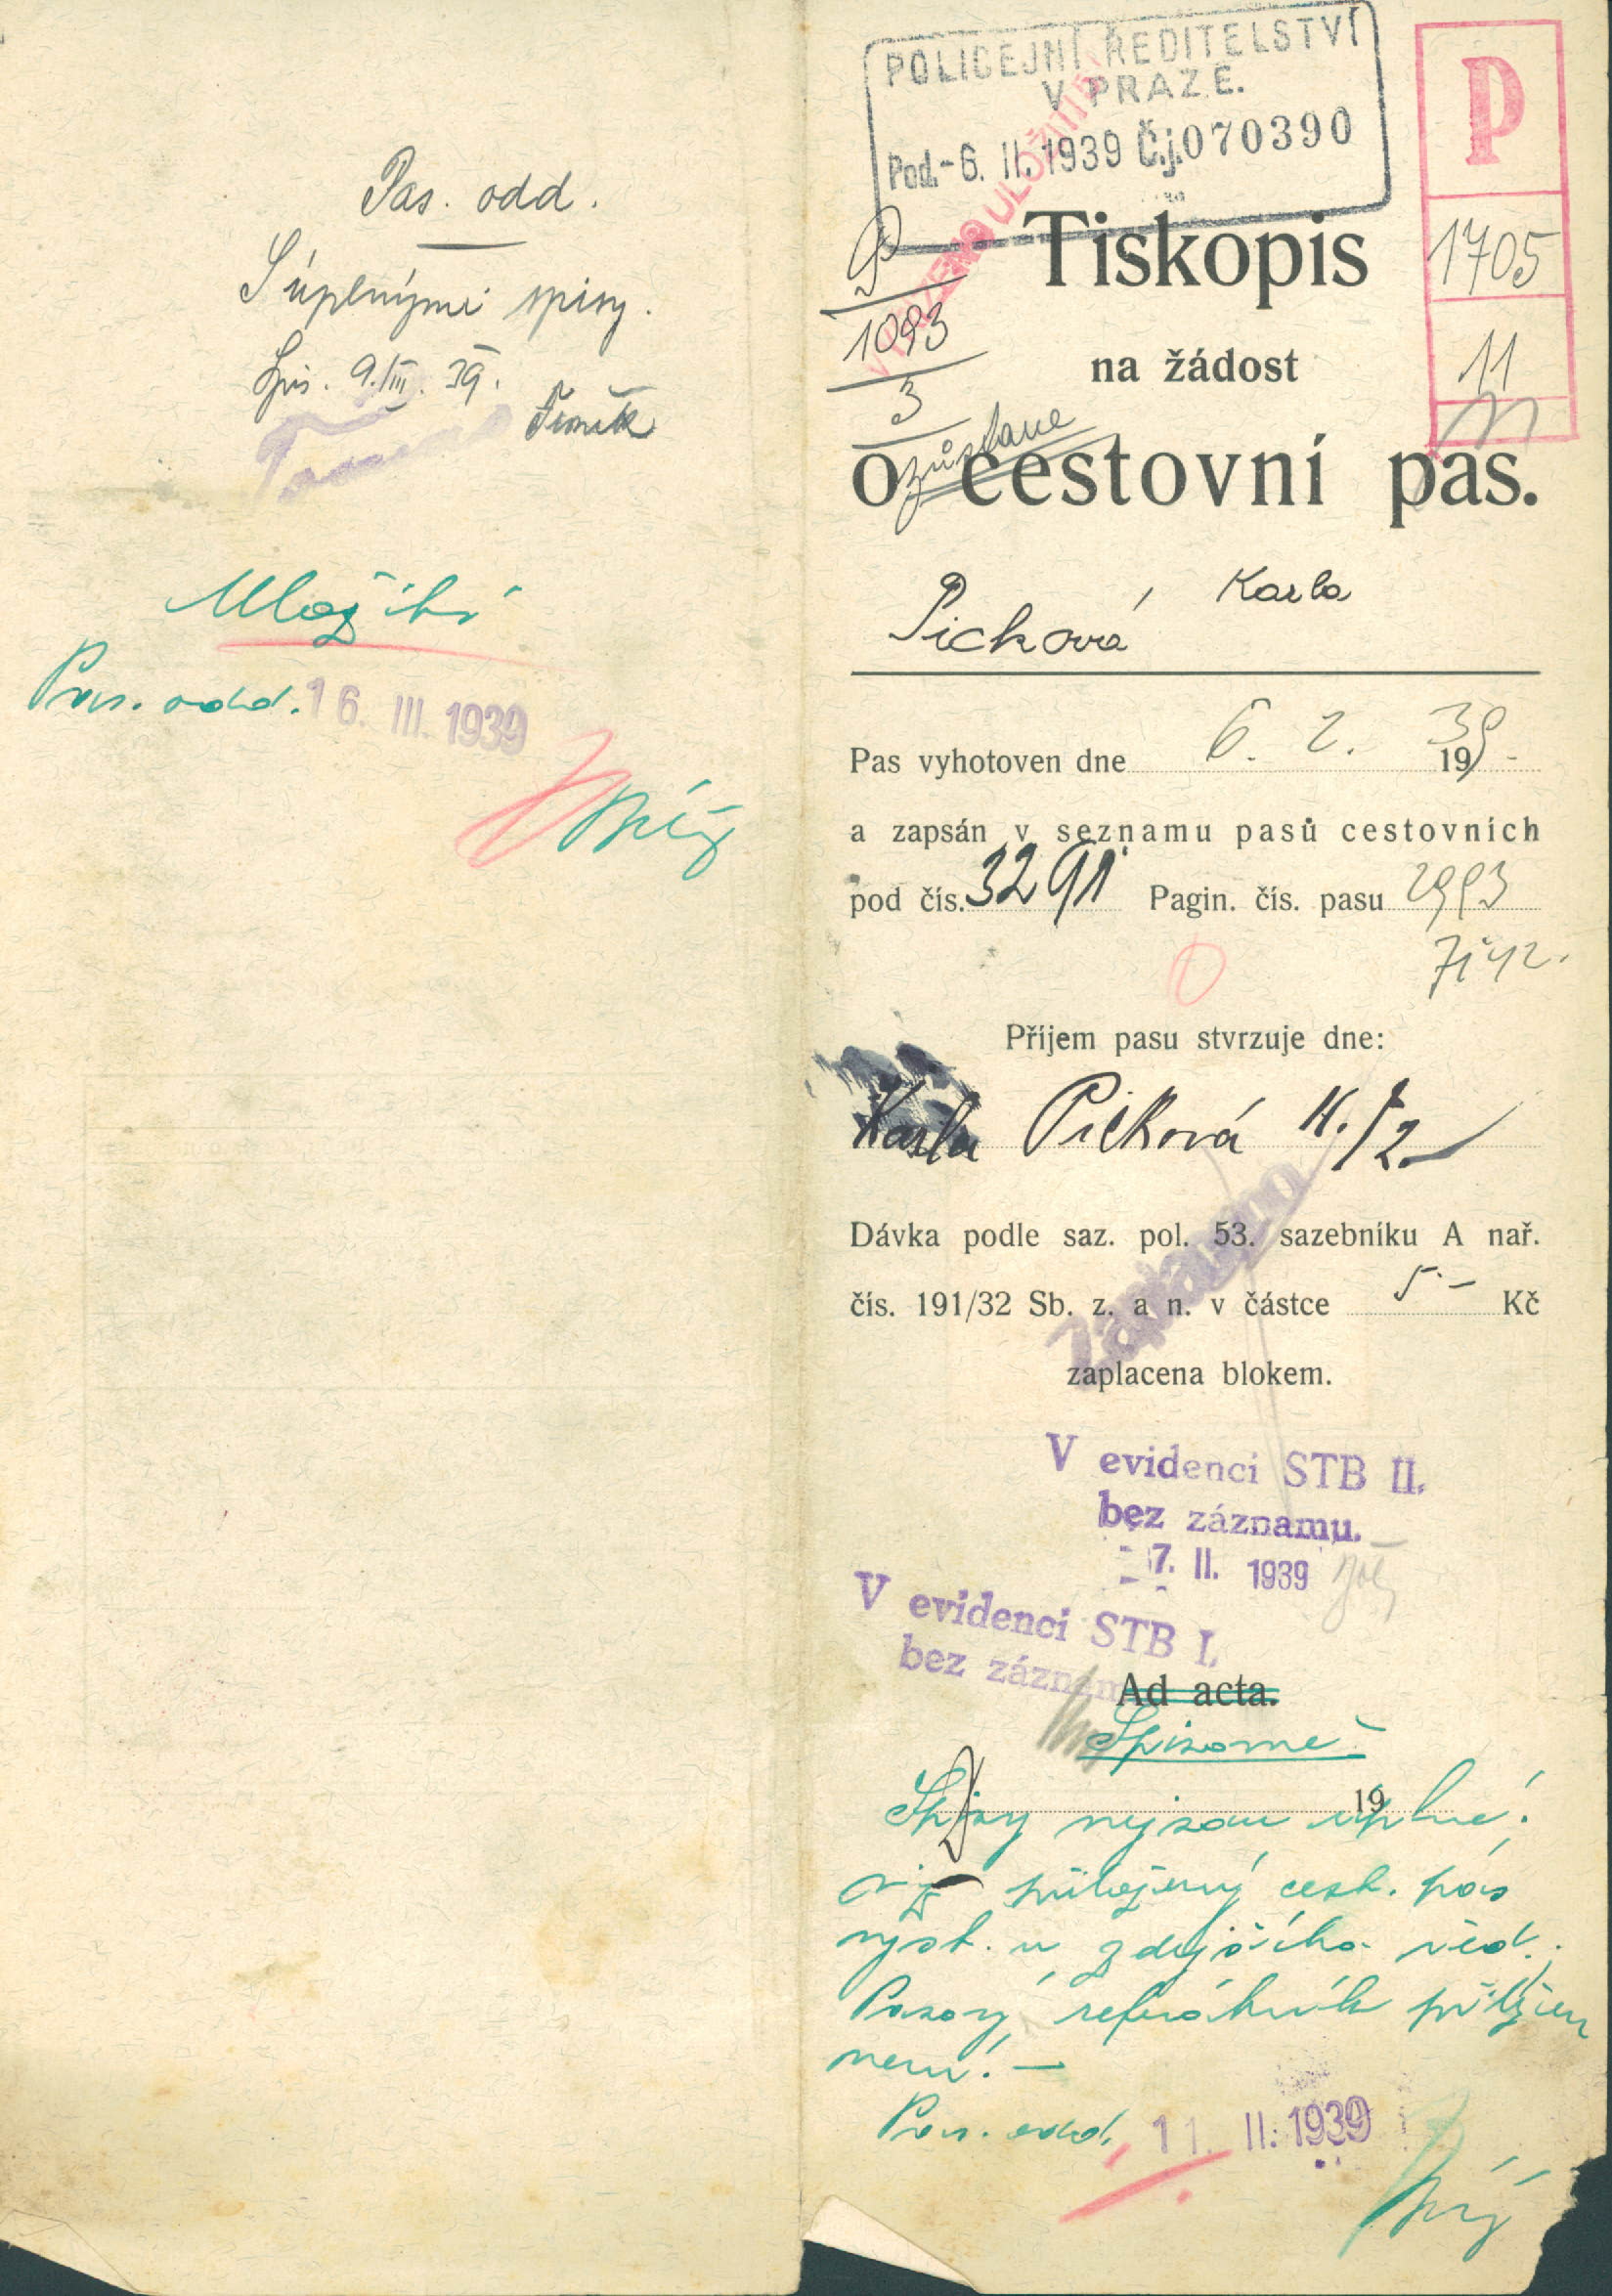 Pas. odd.
S úplnými spisy.
Spis. 9./III. 39.
Uložiti
Pas. odd. 16. III. 1939
POLICEJNÍ ŘEDITELSTVÍ
V PRAZE.
Pod. -6. II. 1939 Č.j. 070390
P
1705
11
P
1093
3
zůstane
Tiskopis
na žádost
o cestovní pas.
Picková Karla
Pas vyhotoven dne 6. 2. 1939
a zapsán v seznamu pasů cestovních
pod čís. 3291 Pagin. čís. pasu 2993
Příjem pasu stvrzuje dne:
Karla Picková 11./2.
Dávka podle saz. pol. 53. sazebníku A nař.
čís. 191/32 Sb. z. a n. v částce 5.- Kč
zaplacena blokem.
Zaplaceno
V evidenci STB II.
bez záznamu.
-7. II. 1939
V evidenci STB I.
bez záznamu
Ad acta.
Spisovně
19
Spisy nejsou úplné!
viz přiložený cest. pas
vyst. u zdejšího řed.
Pasový referátník přiložen
není! —
Pas. odd. 11. II. 1939